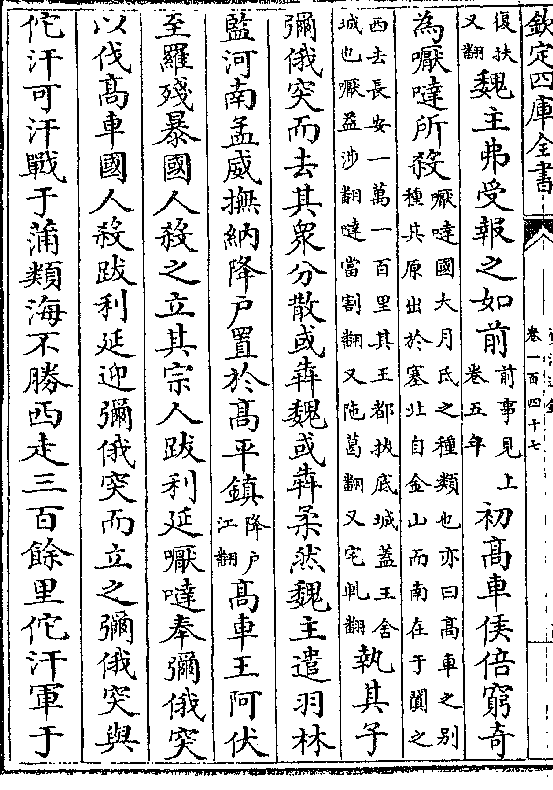 欽定四庫全書
卷一百四十七
復扶又翻魏主弗受報之如前前事見上卷五年初高車侯倍窮奇
為嚈噠所殺嚈噠國大月氏之種類也亦曰高車之别種其原出於塞北自金山而南在于闐之
西去長安一萬一百里其王都拔底城蓋王舍城也嚈益涉翻噠當割翻又陁葛翻又宅軋翻執其子
彌俄突而去其衆分散或奔魏或奔柔然魏主遣羽林
監河南孟威撫納降户置於高平鎮降户江翻高車王阿伏
至羅殘暴國人殺之立其宗人跋利延嚈噠奉彌俄突
以伐高車國人殺跋利延迎彌俄突而立之彌俄突與
佗汗可汗戰于蒲類海不勝西走三百餘里佗汗軍于